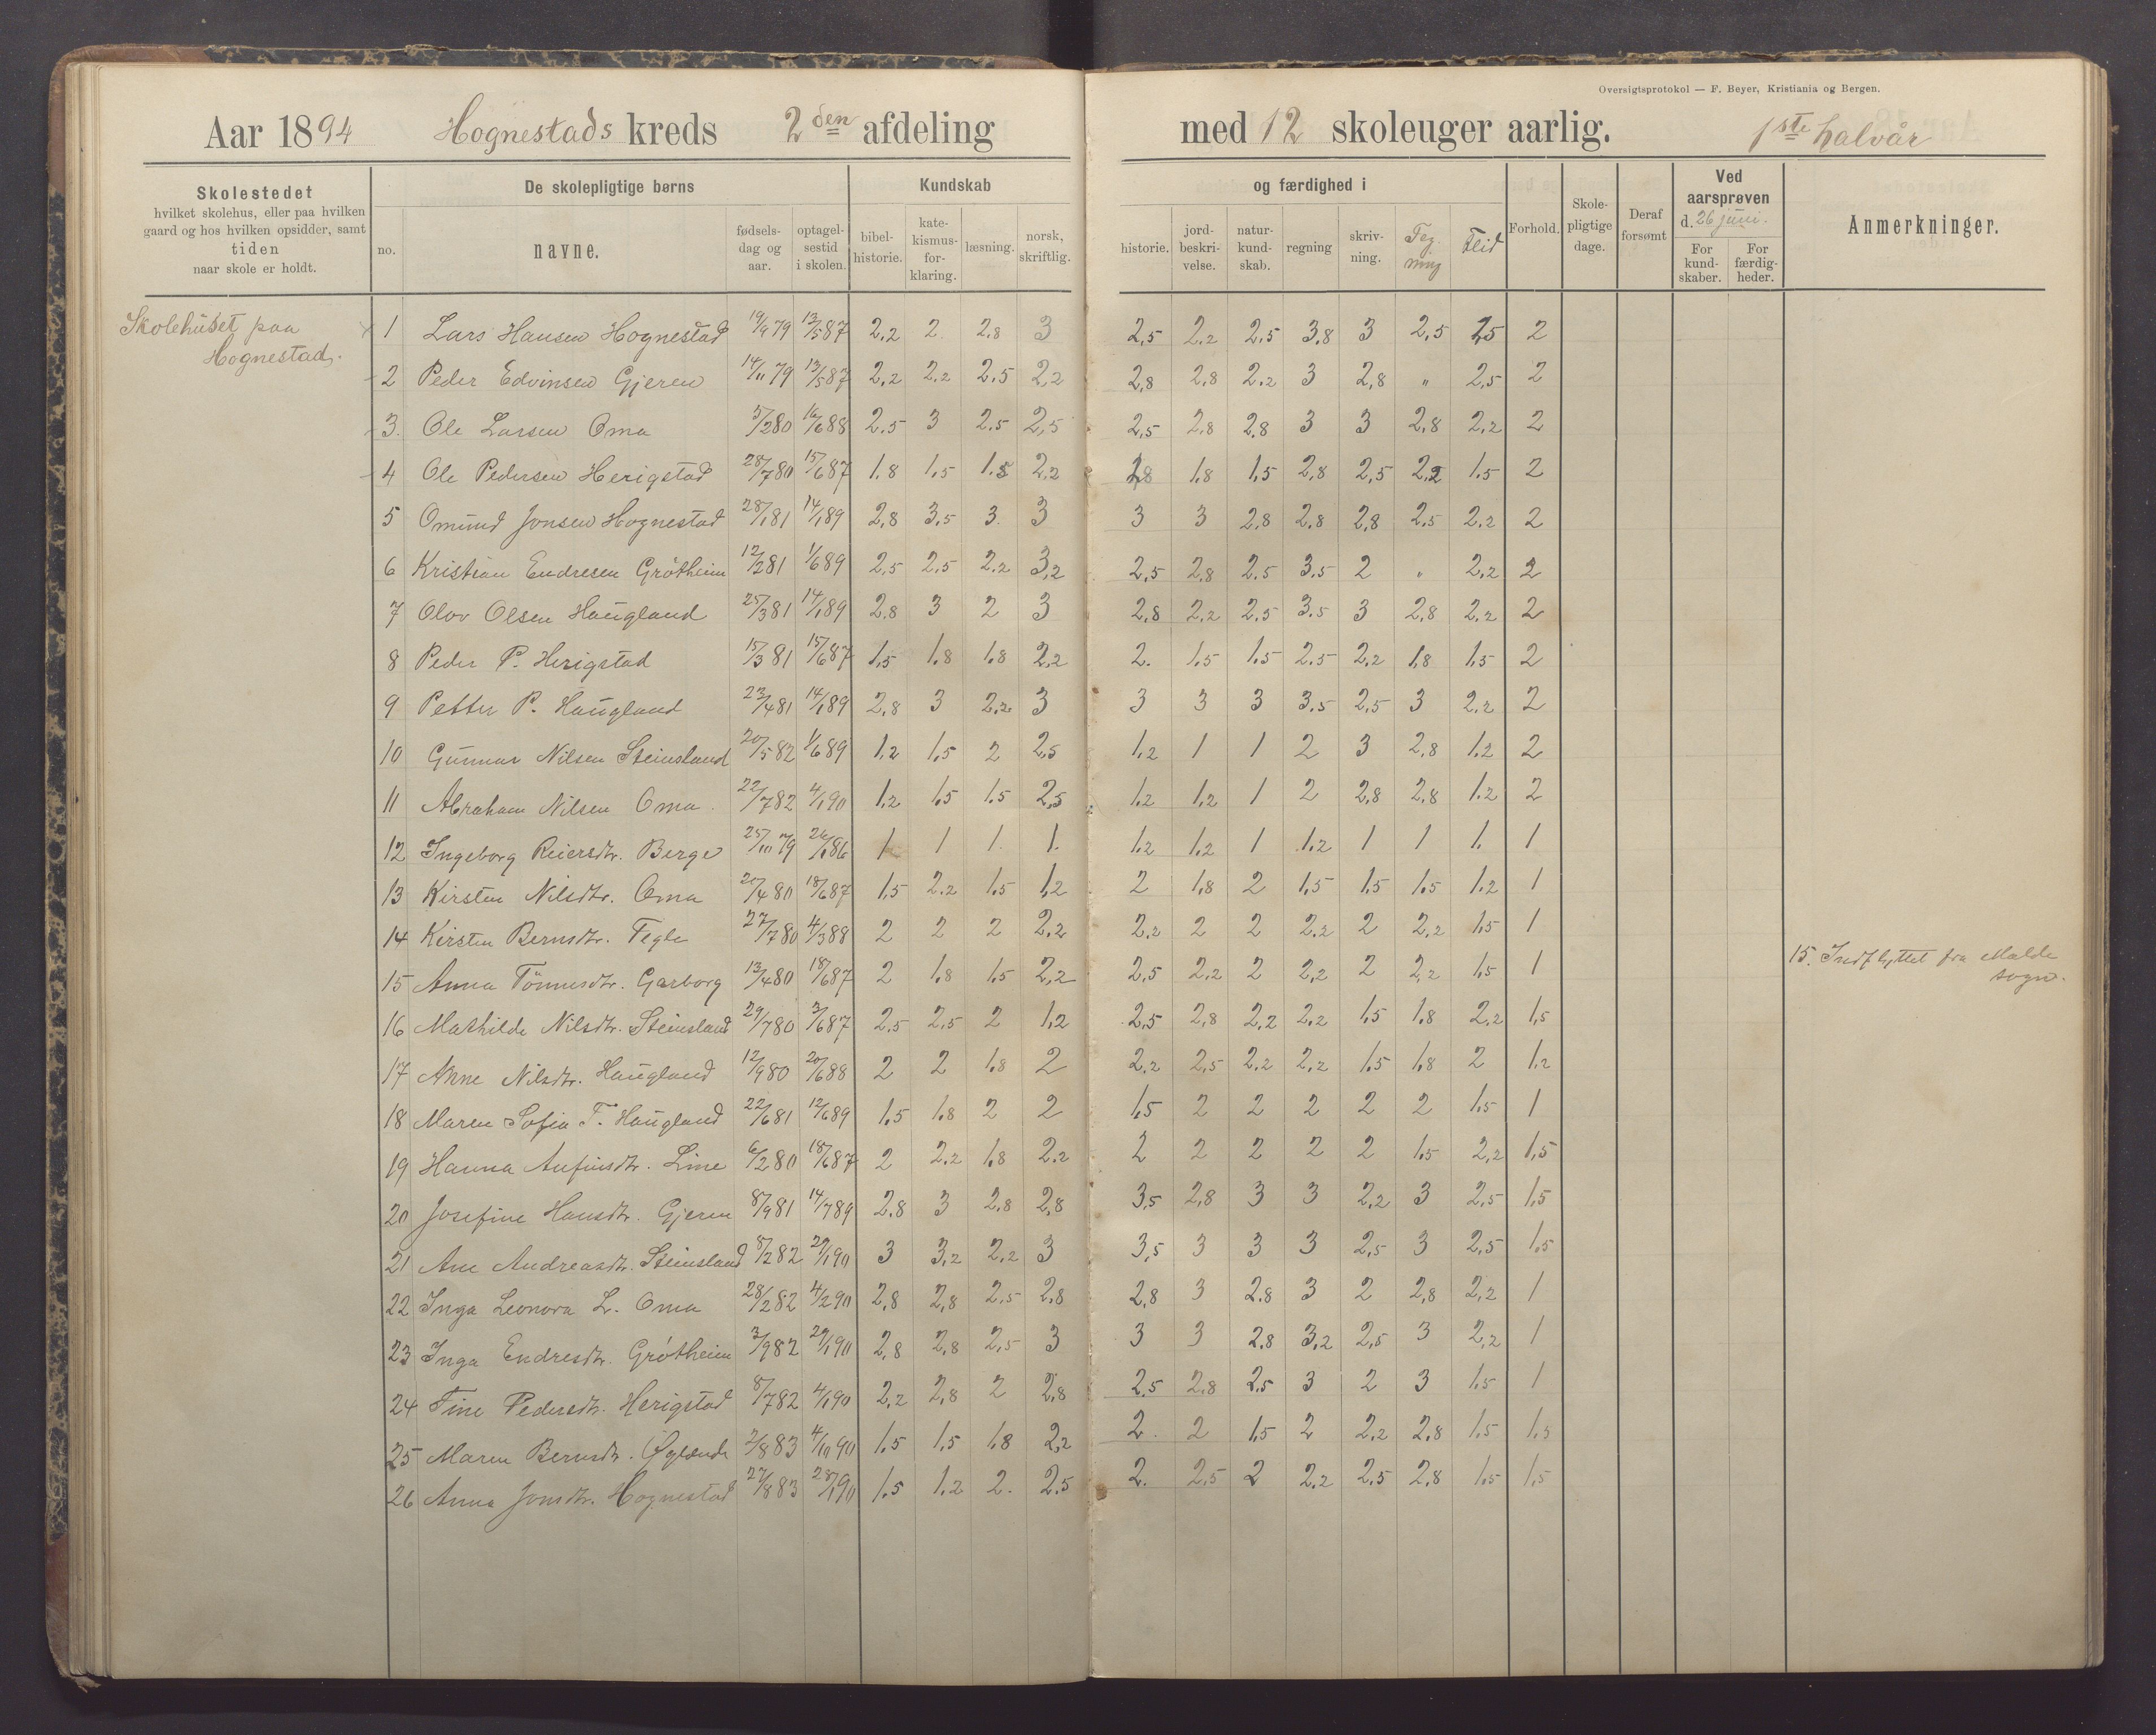 Oversigtsprotokol — F. Beyer, Kristiania og Bergen.
Aar 1894 Hognestads kreds 2den afdeling med 12 skoleuger aarlig. 1ste halvår
Skolestedet hvilket skolehus, eller paa hvilken gaard og hos hvilken opsidder, samt tiden naar skole er holdt.
De skolepligtige børns
no. navne. fødsels-dag og aar. optagel-sestid i skolen.
Kundskab og færdighed i
bibel-historie. kate-kismus-for-klaring. læsning. norsk, skriftlig. historie. jord-beskri-velse. natur-kund-skab. regning skriv-ning. Teg-ning Flid
Forhold. Skole-pligtige dage. Deraf forsømt
Ved aarsprøven d. 26 juni. For kund-skaber. For færdig-heder.
Anmerkninger.
Skolehuset paa
Hognestad.
1 Lars Hansen Hognestad 19/9 79 13/5 87 2,2 2 2,8 3 2,5 2,2 2,5 3,8 3 2,5 2,5 2
2 Peder Edvinsen Gjeren 14/11 79 13/5 87 2,2 2,2 2,5 2,2 2,8 2,8 2,2 3 2,8 " 2,5 2
3. Ole Larsen Oma 5/2 80 16/6 88 2,5 3 2,5 2,5 2,5 2,8 2,8 3 3 2,8 2,2 2
4 Ole Pedersen Herigstad 28/7 80 15/6 87 1,8 1,5 1,5 2,2 1,8 1,5 2,8 2,5 2,2 1,5 2
5 Omund Jonsen Hognestad 28/1 81 14/1 89 2,8 3,5 3. 3 3 3 2,8 2,8 2,8 2,5 2,2 2
6 Kristian Endresen Grötheim 12/2 81 1/6 89 2,5 2,5 2,2 3,2 2,5 2,8 2,5 3,5 2 " 2,2 2
7 Olav Olsen Haugland 25/3 81 14/1 89 2,8 3 2 3 2,8 2,2 2,5 3,5 3 2,8 2,2 2
8 Peder P. Herigstad 15/3 81 15/6 87 1,5 1,8 1,8 2,2 2. 1,5 1,5 2,5 2,2 1,8 1,5 2
9 Petter P. Haugland 23/4 81 14/1 89 2,8 3 2,2 3 3 3 3 3,5 2,5 3 2,2 2
10 Gunnar Nilsen Steinsland 20/5 82 1/6 89 1,2 1,5 2 2,5 1,2 1 1 2 3 2,8 1,2 2
11 Abraham Nilsen Oma. 22/7 82 4/1 90 1,2 1,5 1,5 2,5 1,2 1,2 1 2 2,8 2,8 1,2 2
12 Ingeborg Reiersdtr. Berge 25/10 79 26/1 86 1 1 1. 1. 1,2 1,2 1 1,2 1 1 1. 1
13 Kirsten Nilsdtr. Oma 80 18/6 87 1,5 2,2 1,5 1,2 2 1,8 2 1,5 1,5 1,5 1,2 1
14 Kirsten Bernsdtr. Tegle 27/7 80 4/3 88 2 2 2 2,2 2,2 2 2 2,2 2 2,2 1,5 1
15 Anna Tönnesdtr. Garborg 13/4 80 18/6 87 2 1,8 1,5 2,2 2,5 2,2 2 2,2 2 2,2 1,5 1 15. Indflyttet fra Malde
sogn.
16 Mathilde Nilsdtr. Steinsland 29/7 80 3/6 87 2,5 2,5 2 1,2 2,5 2,8 2,2 2,2 1,5 1,8 2,2 1,5
17 Anne Nilsdtr. Haugland 12/9 80 20/6 88 2 2 1,8 2 2,2 2,5 2,2 2,2 1,5 1,8 2 1,2
18 Maren Sofia T. Haugland 22/6 81 12/6 89 1,5 1,8 2 2 1,5 2 2 2 2 2 1,5 1
19 Hanna Anfinsdtr. Line 6/2 80 18/6 87 2 2,2 1,8 2,2 2 2 2 2 2 1,5 2,2 1,5
20 Josefine Hansdtr. Gjeren 8/9 81 14/7 89 2,8 3 2,8 2,8 3,5 2,8 3 3 2,2 3 2,5 1,5
21 Ane Andreasdtr. Steinsland 8/2 82 29/1 90 3 3,2 2,2 3 3,5 3 3 3 2,5 3 2,5 1,5
22 Inga Leonora L. Oma 28/2 82 4/2 90 2,8 2,8 2,5 2,8 2,8 3 2,8 3 2 2,8 2,2 1
23 Inga Endresdtr. Grötheim 3/9 82 29/1 90 2,8 2,8 2,5 3 3 3 2,8 3,2 2,5 3 2,2 1
24 Tine Pedersdtr. Herigstad 8/7 82 4/1 90 2,2 2,8 2 2,8 2,5 2,8 2,5 3 2 3 1,5 1
25 Maren Bernsdtr. Øglænde 2/8 83 4/10 90 1,5 1,5 1,8 2,2 2. 2 1,5 2 2,2 2,8 1,5 1,5
26 Anna Jonsdtr. Hognestad 27/8 83 28/1 90 1,5 1,2 2. 2,5 2. 2,5 2 2,2 2,5 2,8 1,5 1,5